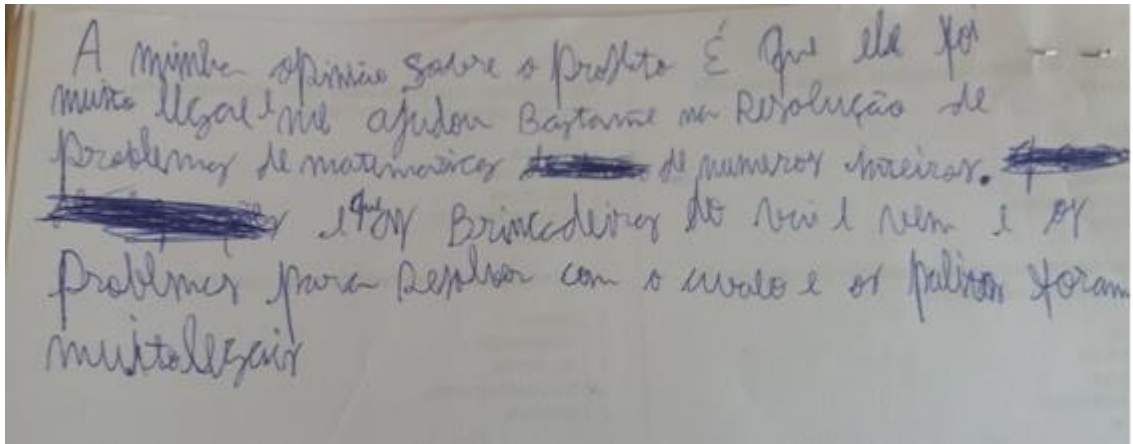 A minha opinião sobre o projeto É que ele foi
muito legal e me ajudou Bastante na Resolução de
problemas de matematica de numeros inteiros.
e que as Brincadeiras do vai e vem e os
problemas para Resolver com o e os palitos foram
muito legais